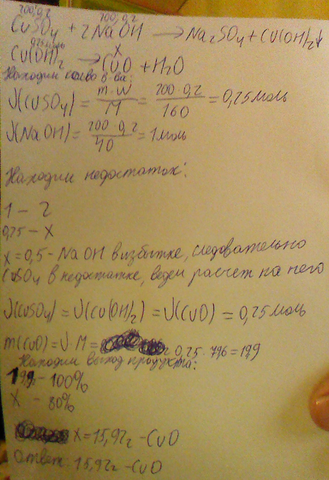 200·0,2 200·0,2
CuSO₄ + 2NaOH → Na₂SO₄ + Cu(OH)₂↓
0,25моль x
Cu(OH)₂ → CuO + H₂O
Находим кол-во в-ва:
ν(CuSO₄) = m·W / M = 200·0,2 / 160 = 0,25 моль
ν(NaOH) = 200·0,2 / 40 = 1 моль
Находим недостаток:
1 – 2
0,25 – x
x = 0,5 - NaOH в избытке, следовательно
CuSO₄ в недостатке, ведем расчет на него
ν(CuSO₄) = ν(Cu(OH)₂) = ν(CuO) = 0,25 моль
m(CuO) = ν·M = 0,25·796 = 199
Находим выход продукта:
199 - 100%
x - 80%
x = 15,92г - CuO
Ответ: 15,92г - CuO